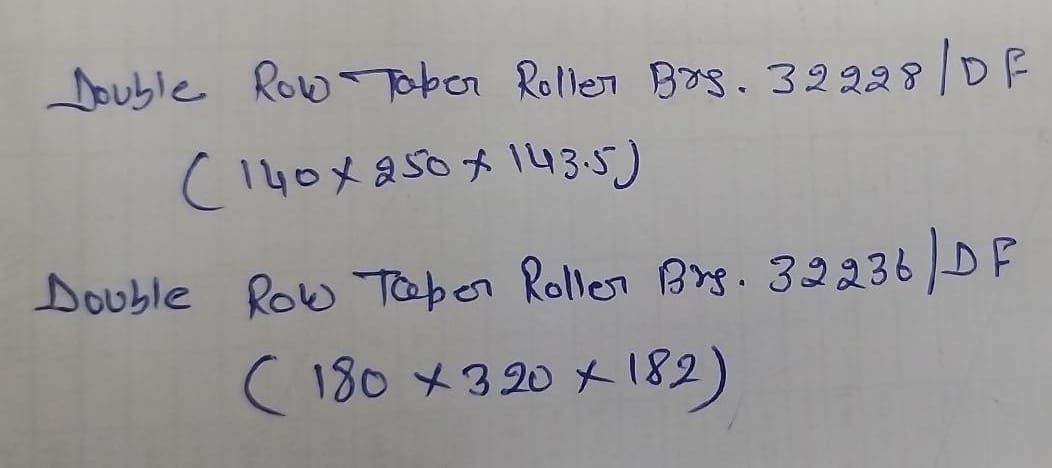 Double Row Taper Roller Brg. 32228/DF
(140 x 250 x 143.5)
Double Row Taper Roller Brg. 32236/DF
(180 x 320 x 182)